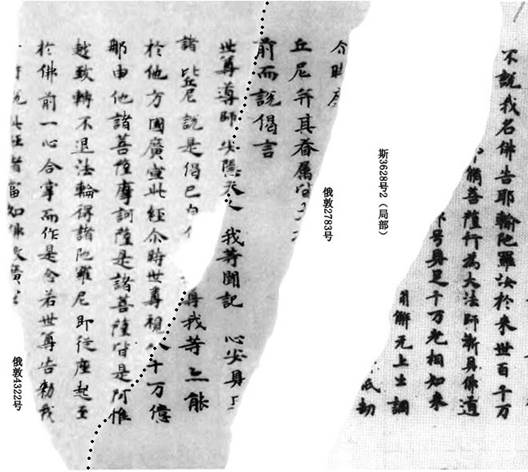 不說我名佛告耶輸陀羅汝於來世百千万
脩菩薩行為大法師漸具佛道
号具足千万光相如來
解无上士調
祇劫
斯3628号2（局部）
俄敦2783号
尒時
丘尼并其眷属皆
前而說偈言
世尊導師 安隱天人 我等聞記 心安具
諸比丘尼說是偈已白 我等亦能
於他方國廣宣此經尒時世尊視八十万億
那由他諸菩薩摩訶薩是諸菩薩皆是阿惟
越致轉不退法輪得諸陀羅尼即從座起至
於佛前一心合掌而作是念若世尊告勑我
說此經者當如佛教廣
俄敦4322号